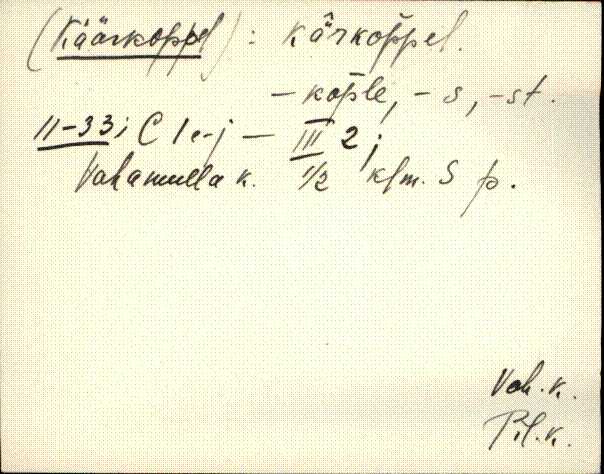 (Käärkoppel) : kä̂rkop̆pel.
– kop̆le, – s, – st.
11-33; C I e-j — III 2;
Vahamulla k. 1/2 klm. S p.
Vah. k.
Pil. k.